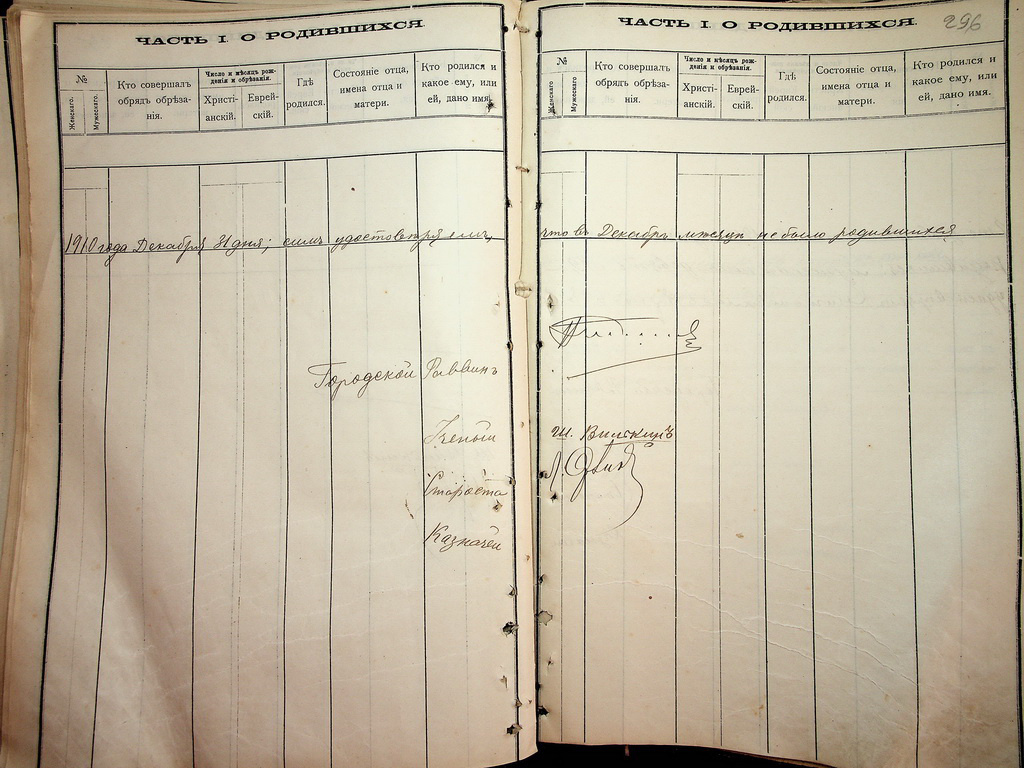 ЧАСТЬ I. О РОДИВШИХСЯ.
№
Женскаго.
Мужескаго.
Кто совершал
обряд обрѣза-
нія.
Число и мѣсяцъ рож-
денія и обрѣзанія.
Христі-
анскій.
Еврей-
скій.
Гдѣ
родился.
Состояніе отца,
имена отца и
матери.
Кто родился и
какое ему, или
ей, дано имя.
1910 года Декабря 31 дня; симъ удостовѣряемъ,
Городской Раввинъ
Ученый
Староста
Казначей
296
ЧАСТЬ I. О РОДИВШИХСЯ.
№
Женскаго
Мужескаго
Кто совершал
обряд обрѣза-
нія.
Число и мѣсяцъ рож-
денія и обрѣзанія.
Христі-
анскій.
Еврей-
скій.
Гдѣ
родился.
Состояніе отца,
имена отца и
матери.
Кто родился и
какое ему, или
ей, дано имя.
что въ Декабрѣ мѣсяцѣ не было родившихся
Ш. Вилскеръ